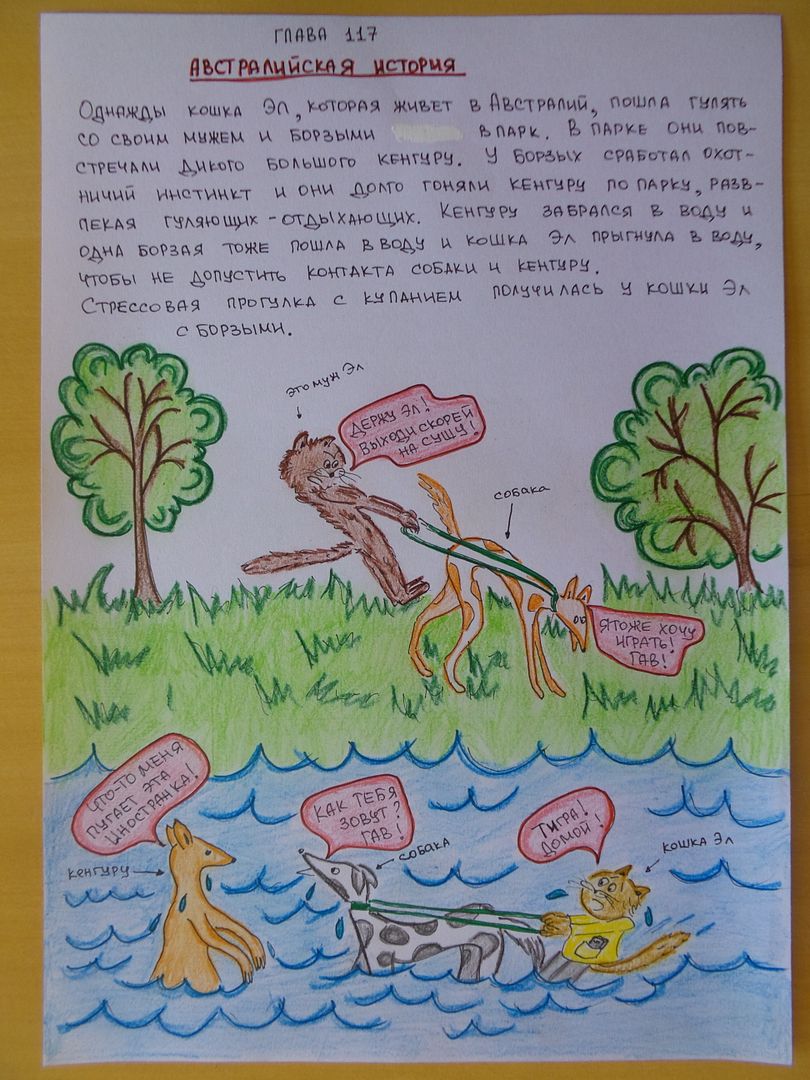 ГЛАВА 117
АВСТРАЛИЙСКАЯ ИСТОРИЯ
ОДНАЖДЫ КОШКА ЭЛ, КОТОРАЯ ЖИВЕТ В АВСТРАЛИЙ, ПОШЛА ГУЛЯТЬ
СО СВОИМ МУЖЕМ И БОРЗЫМИ В ПАРК. В ПАРКЕ ОНИ ПОВ-
СТРЕЧАЛИ ДИКОГО БОЛЬШОГО КЕНГУРУ. У БОРЗЫХ СРАБОТАЛ ОХОТ-
НИЧИЙ ИНСТИНКТ И ОНИ ДОЛГО ГОНЯЛИ КЕНГУРУ ПО ПАРКУ, РАЗВ-
ЛЕКАЯ ГУЛЯЮЩИХ-ОТДЫХАЮЩИХ. КЕНГУРУ ЗАБРАЛСЯ В ВОДУ И
ОДНА БОРЗАЯ ТОЖЕ ПОШЛА В ВОДУ И КОШКА ЭЛ ПРЫГНУЛА В ВОДУ,
ЧТОБЫ НЕ ДОПУСТИТЬ КОНТАКТА СОБАКИ И КЕНГУРУ.
СТРЕССОВАЯ ПРОГУЛКА С КУПАНИЕМ ПОЛУЧИЛАСЬ У КОШКИ ЭЛ
С БОРЗЫМИ.
ЭТО МУЖ ЭЛ
ДЕРЖУ ЭЛ!
ВЫХОДИ СКОРЕЙ
НА СУШУ!
СОБАКА
Я ТОЖЕ ХОЧУ
ИГРАТЬ!
ГАВ!
ЧТО-ТО МЕНЯ
ПУГАЕТ ЭТА
ИНОСТРАНКА!
КЕНГУРУ
КАК ТЕБЯ
ЗОВУТ?
ГАВ!
СОБАКА
ТИГРА!
ДОМОЙ!
КОШКА ЭЛ